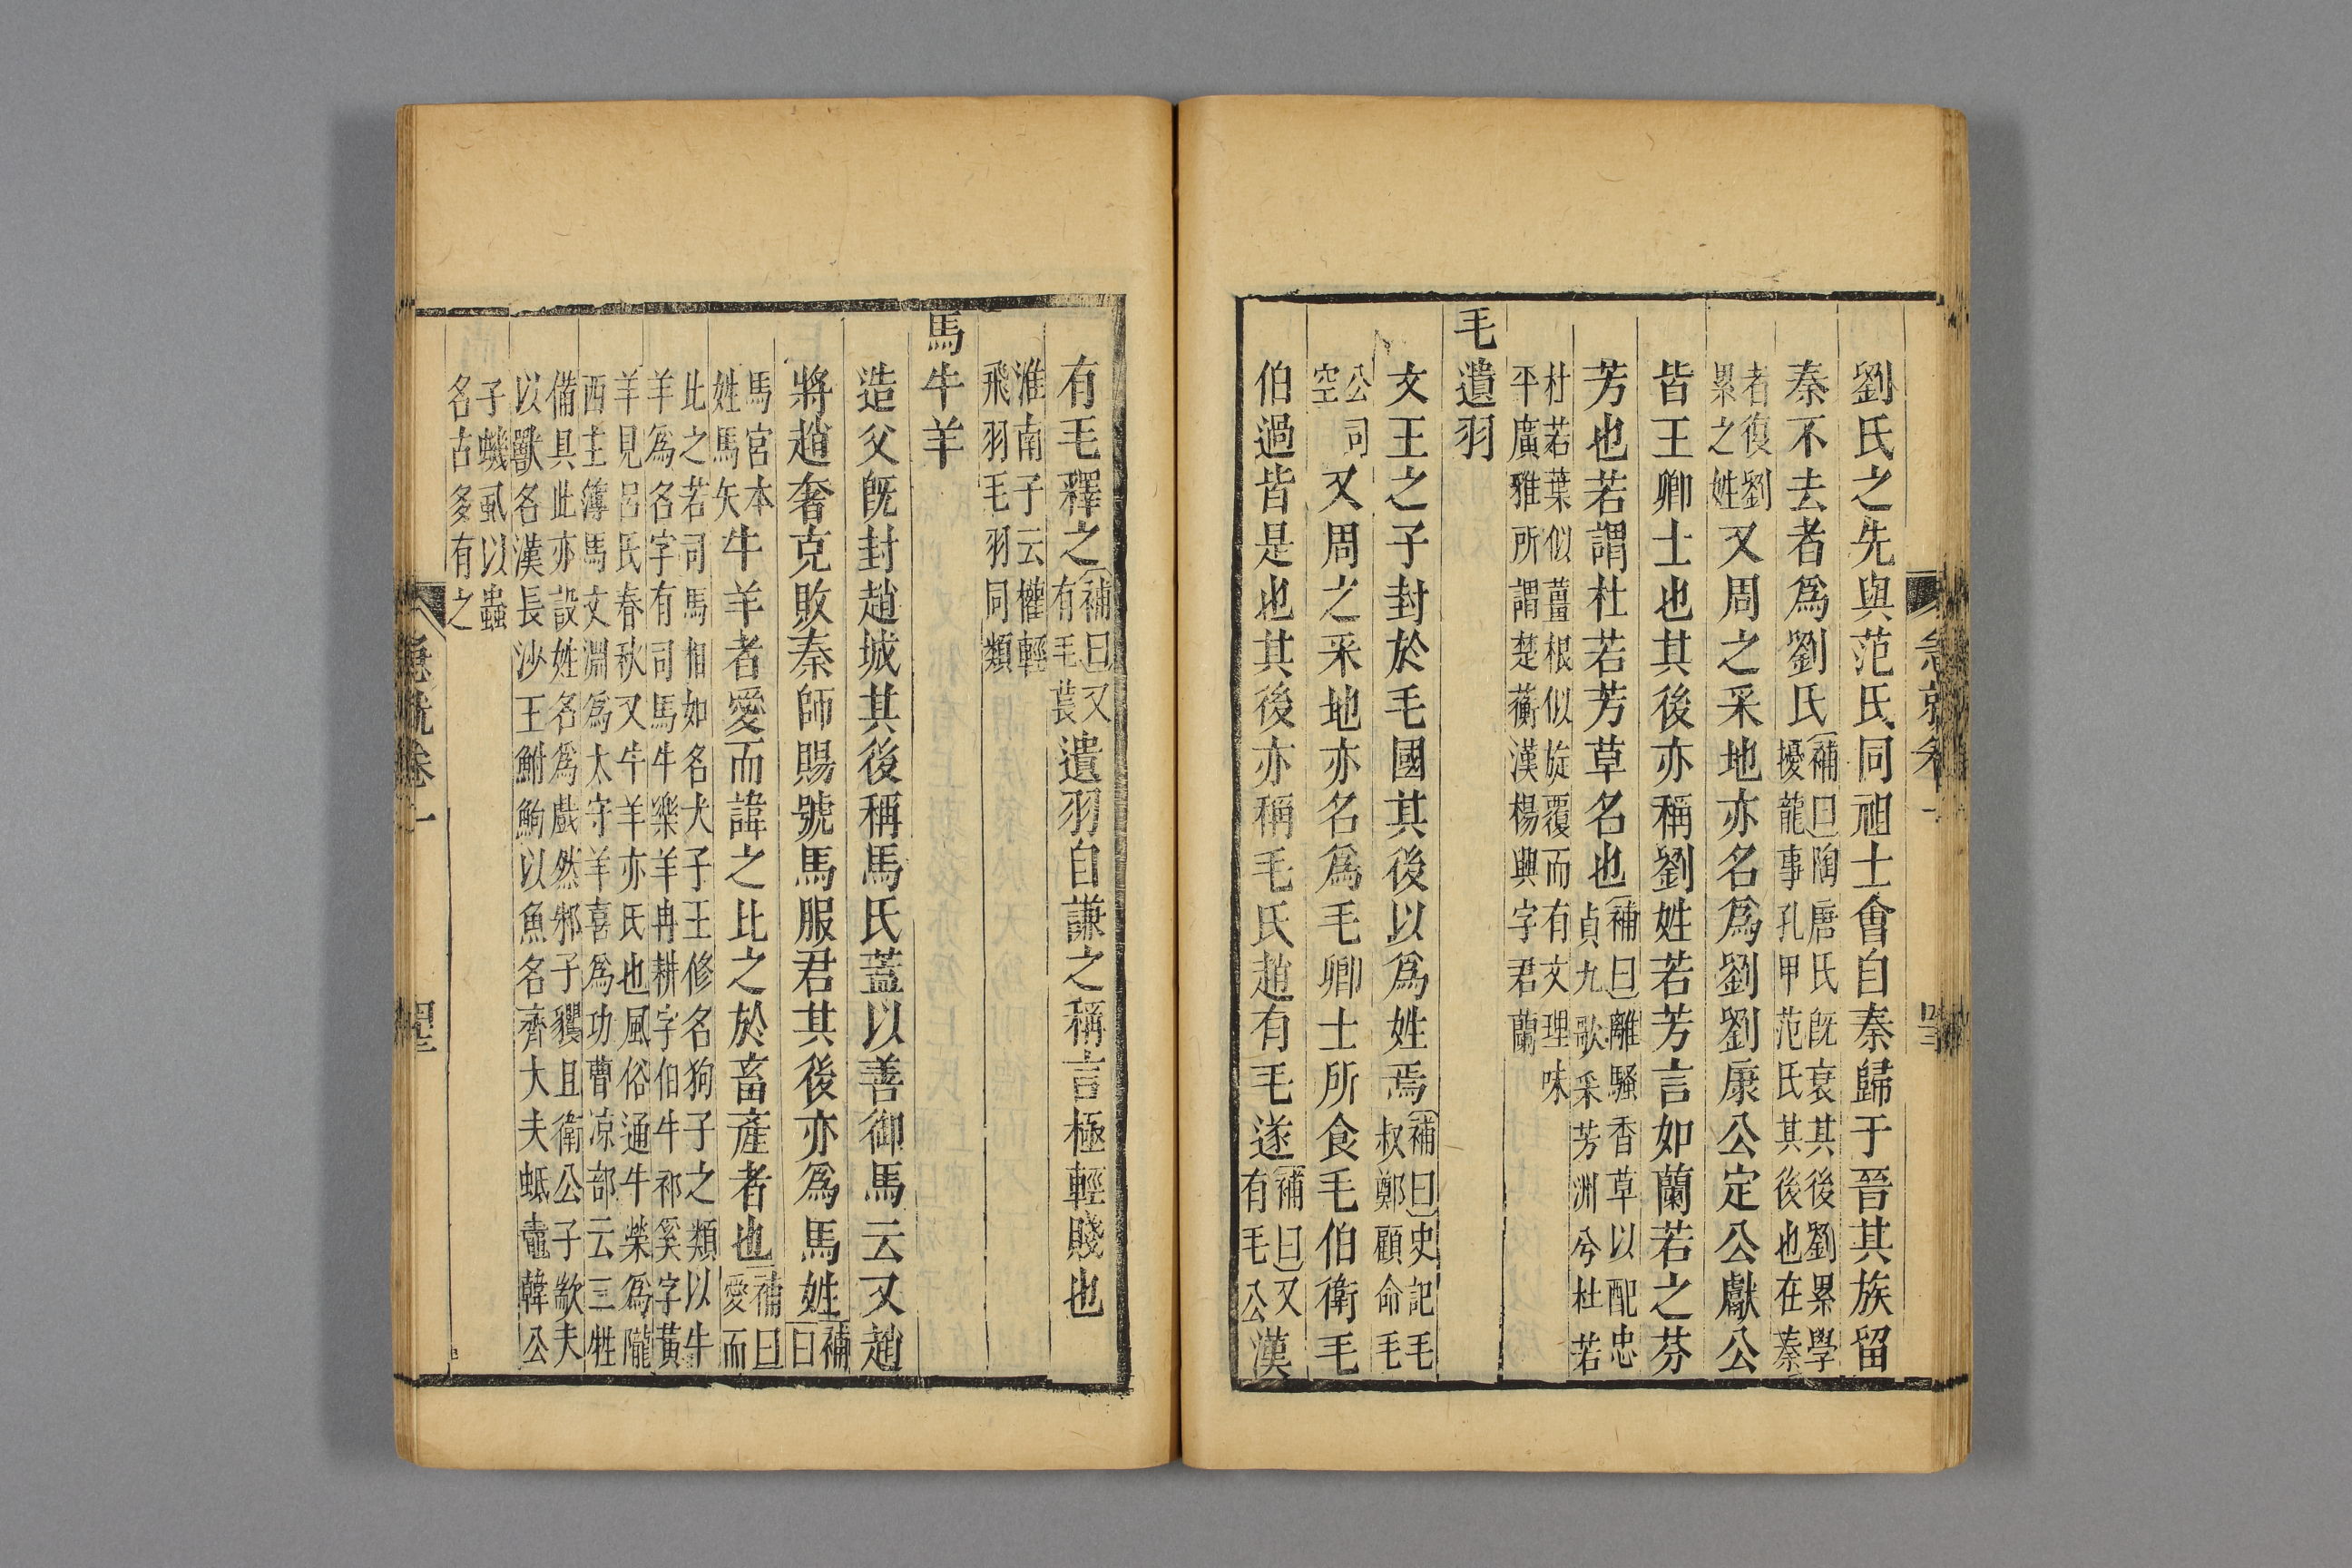 劉氏之先與范氏同祖士會自秦歸于晉其族留
秦不去者爲劉氏補曰陶唐氏旣衰其後劉累學
擾龍事孔甲范氏其後也在秦
者復劉
累之姓又周之采地亦名爲劉劉康公定公獻公
皆王卿士也其後亦稱劉姓若芳言如蘭若之芬
芳也若謂杜若芳草名也補曰離騷香草以配忠
貞九歌采芳洲兮杜若
杜若葉似薑根似旋覆而有文理味
平廣雅所謂楚蘅漢楊興字君蘭
毛遺羽
文王之子封於毛國其後以爲姓焉補曰史記毛
叔鄭顧命毛
公司
空又周之采地亦名爲毛卿士所食毛伯衛毛
伯過皆是也其後亦稱毛氏趙有毛遂補曰又
有毛公漢
有毛釋之補曰又
有毛萇遺羽自謙之稱言極輕賤也
淮南子云權輕
飛羽毛羽同類
馬牛羊
造父旣封趙城其後稱馬氏蓋以善御馬云又趙
將趙奢克敗秦師賜號馬服君其後亦爲馬姓補
曰
馬宮本
姓馬矢牛羊者愛而諱之比之於畜產者也補曰
愛而
比之若司馬相如名犬子王修名狗子之類以牛
羊爲名字有司馬牛樂羊冉耕字伯牛祁奚字黃
羊見呂氏春秋又牛羊亦氏也風俗通牛榮爲隴
西主簿馬文淵爲太守羊喜爲功曹凉部云三牲
備具此亦設姓名爲戲然邾子貜且衛公子歂夫
以獸名漢長沙王鮒鮈以魚名齊大夫蚳鼃韓公
子蟣虱以蟲
名古多有之
急就卷一